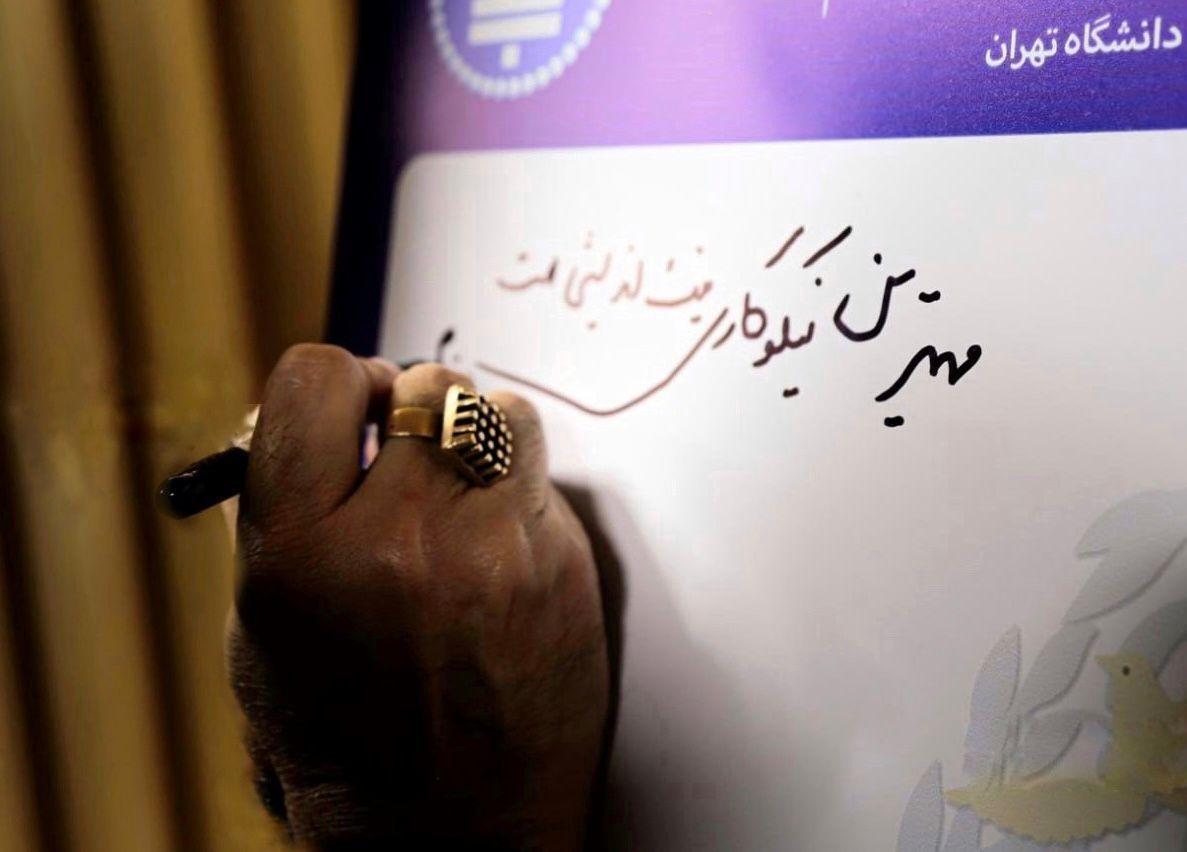 دانشگاه تهران
مهمترین نیکوکاری مثبت اندیشی است